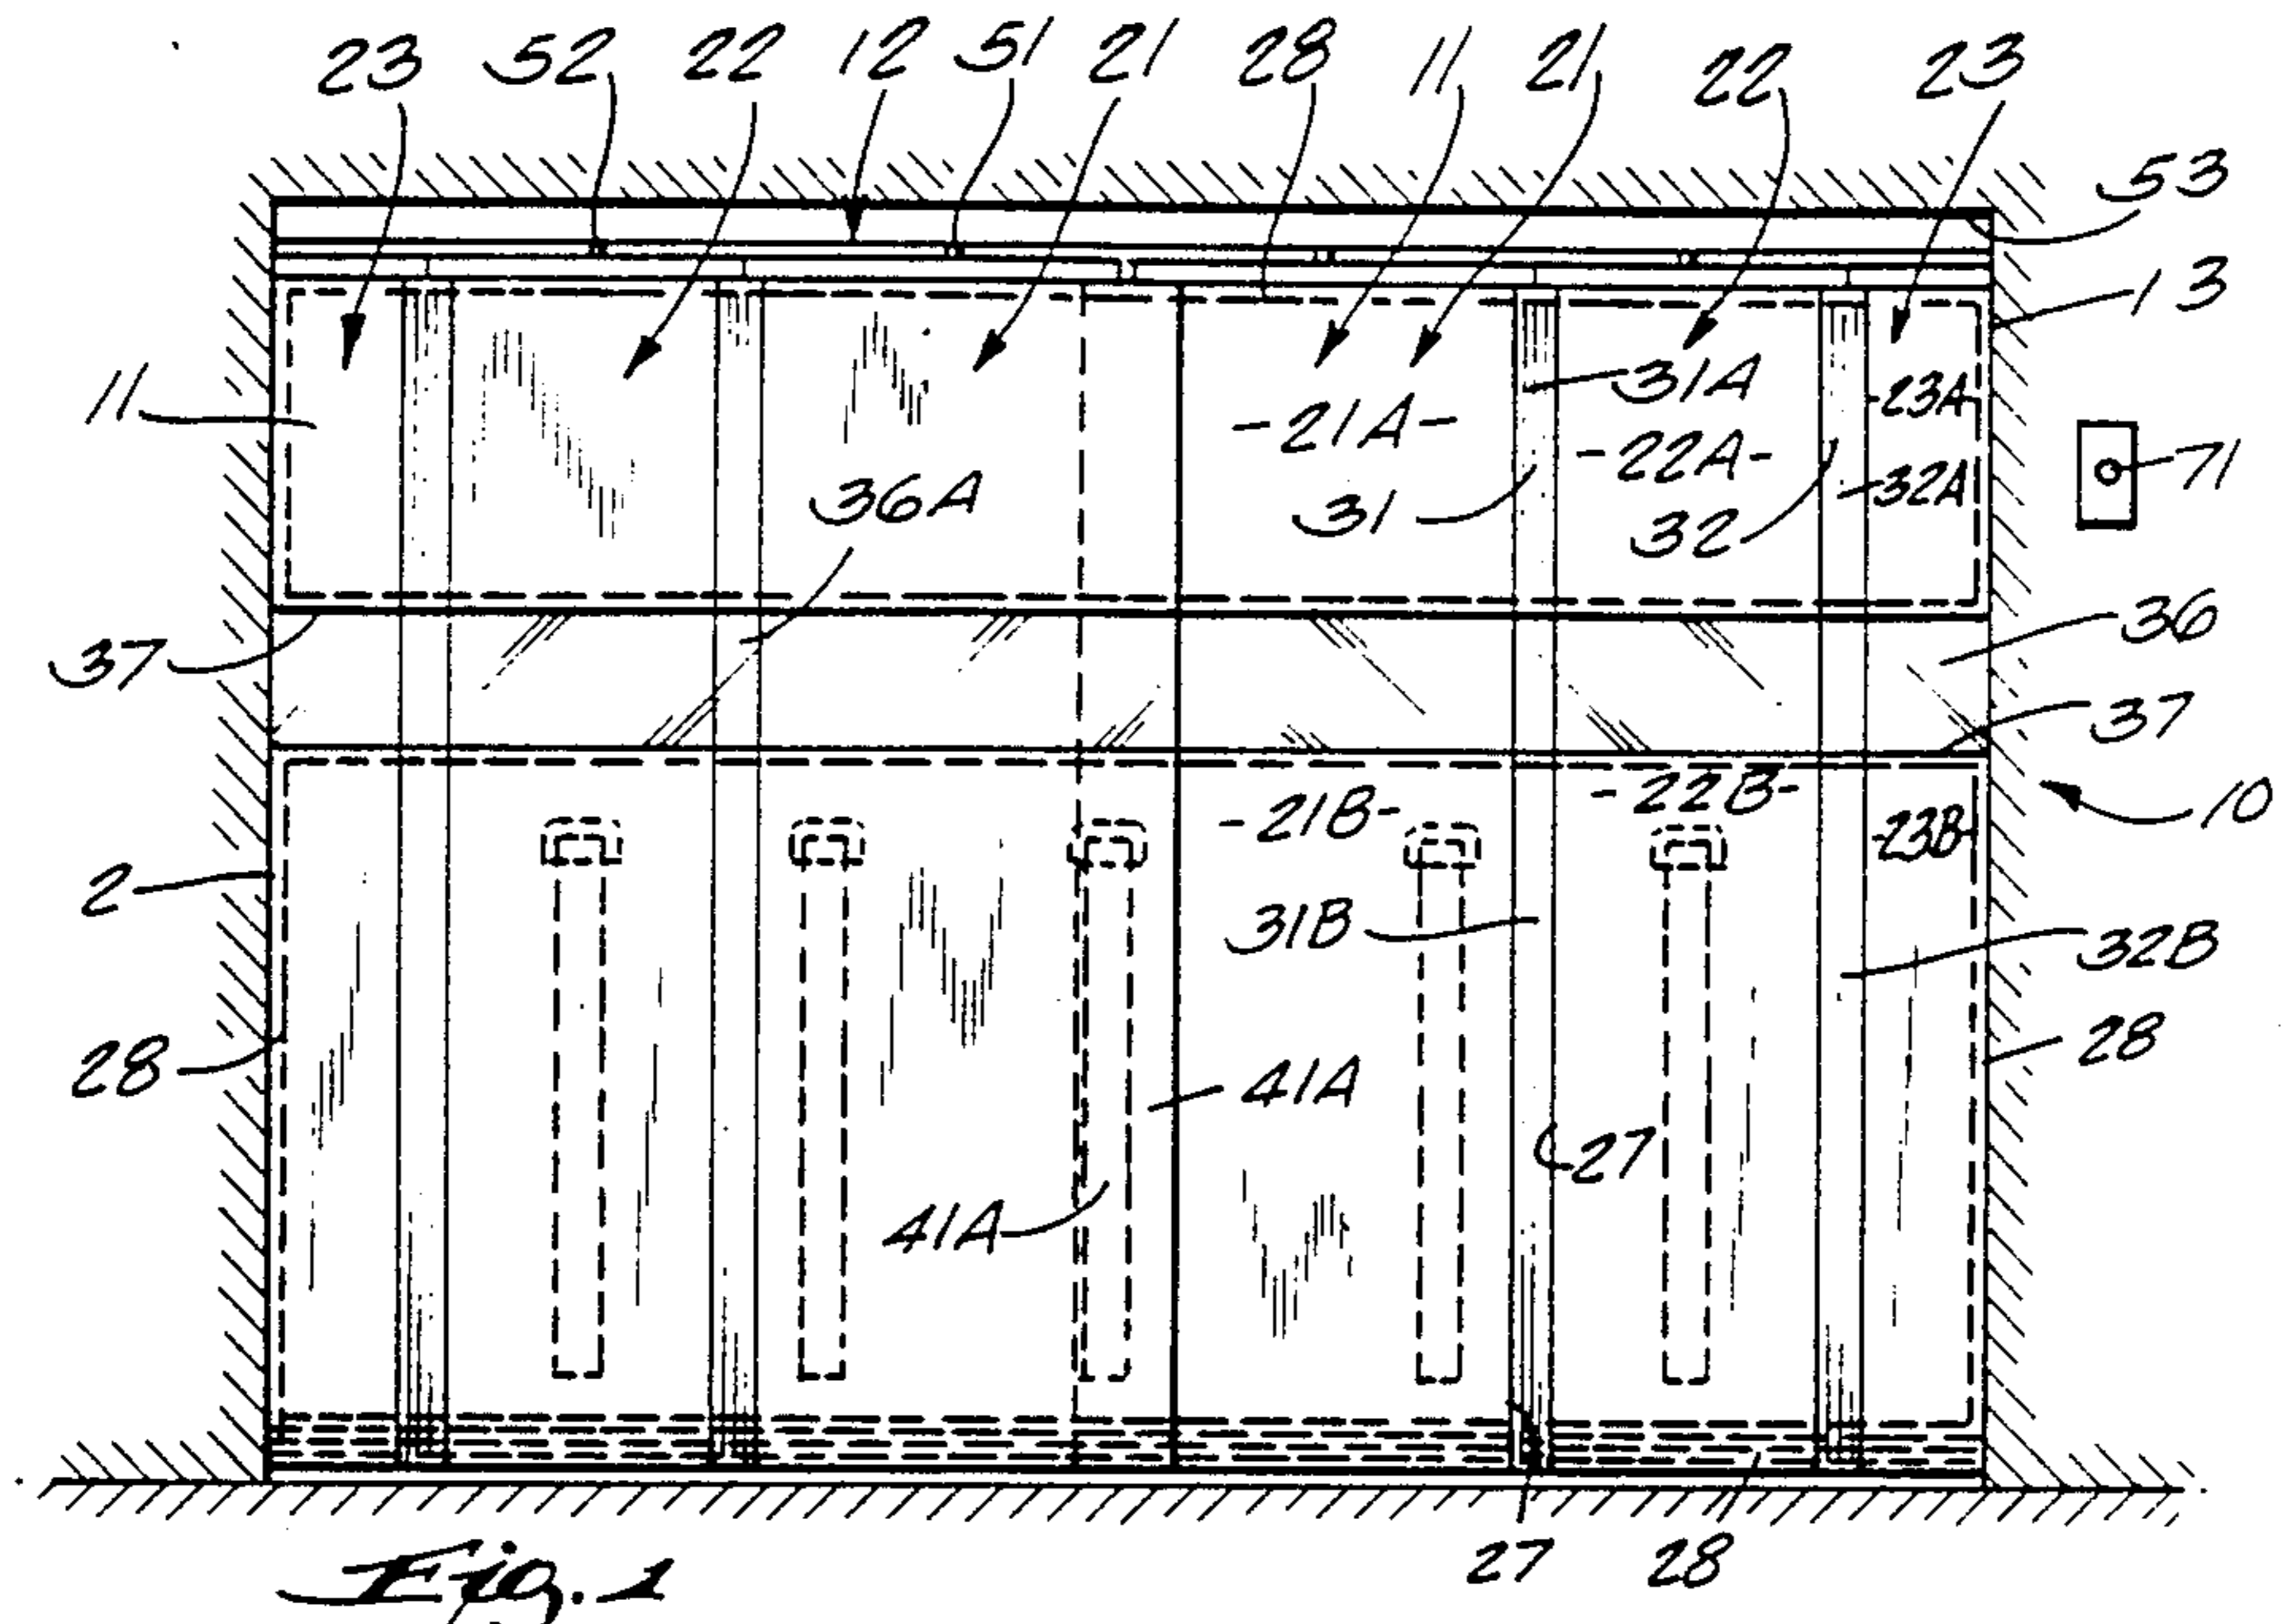 23 52 22 12 51 21 28 11 21 22 23
53
13
11 31A 23A
-21A- -22A- 71
36A 31 32 32A
36
37
37
-21B- -22B- 10
2 23B
31B 32B
28 28
41A
27
41A
27 28
Fig. 1